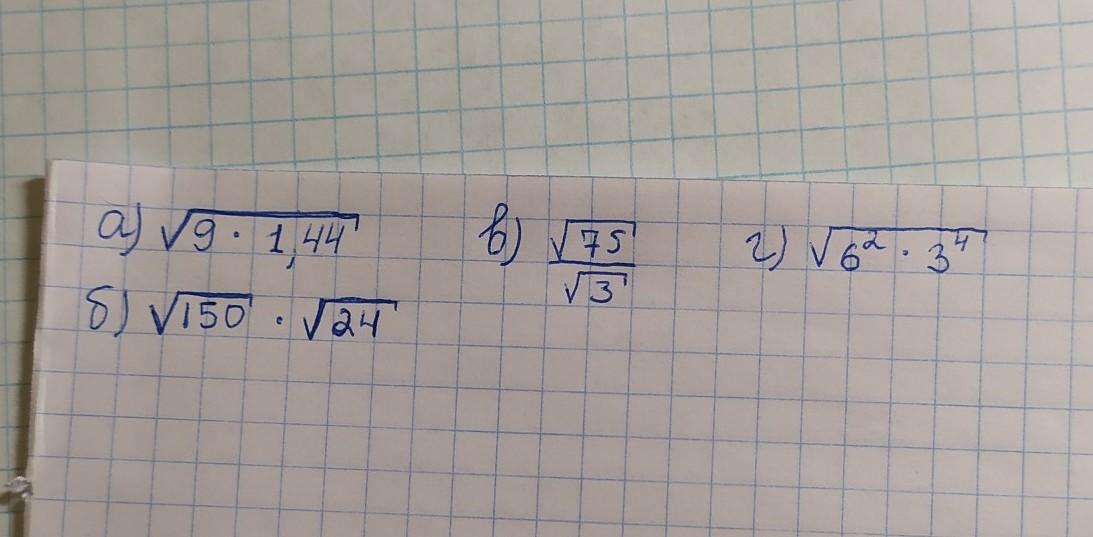 а) √9 · 1,44 в) √75/√3 г) √6² · 3⁴
б) √150 · √24